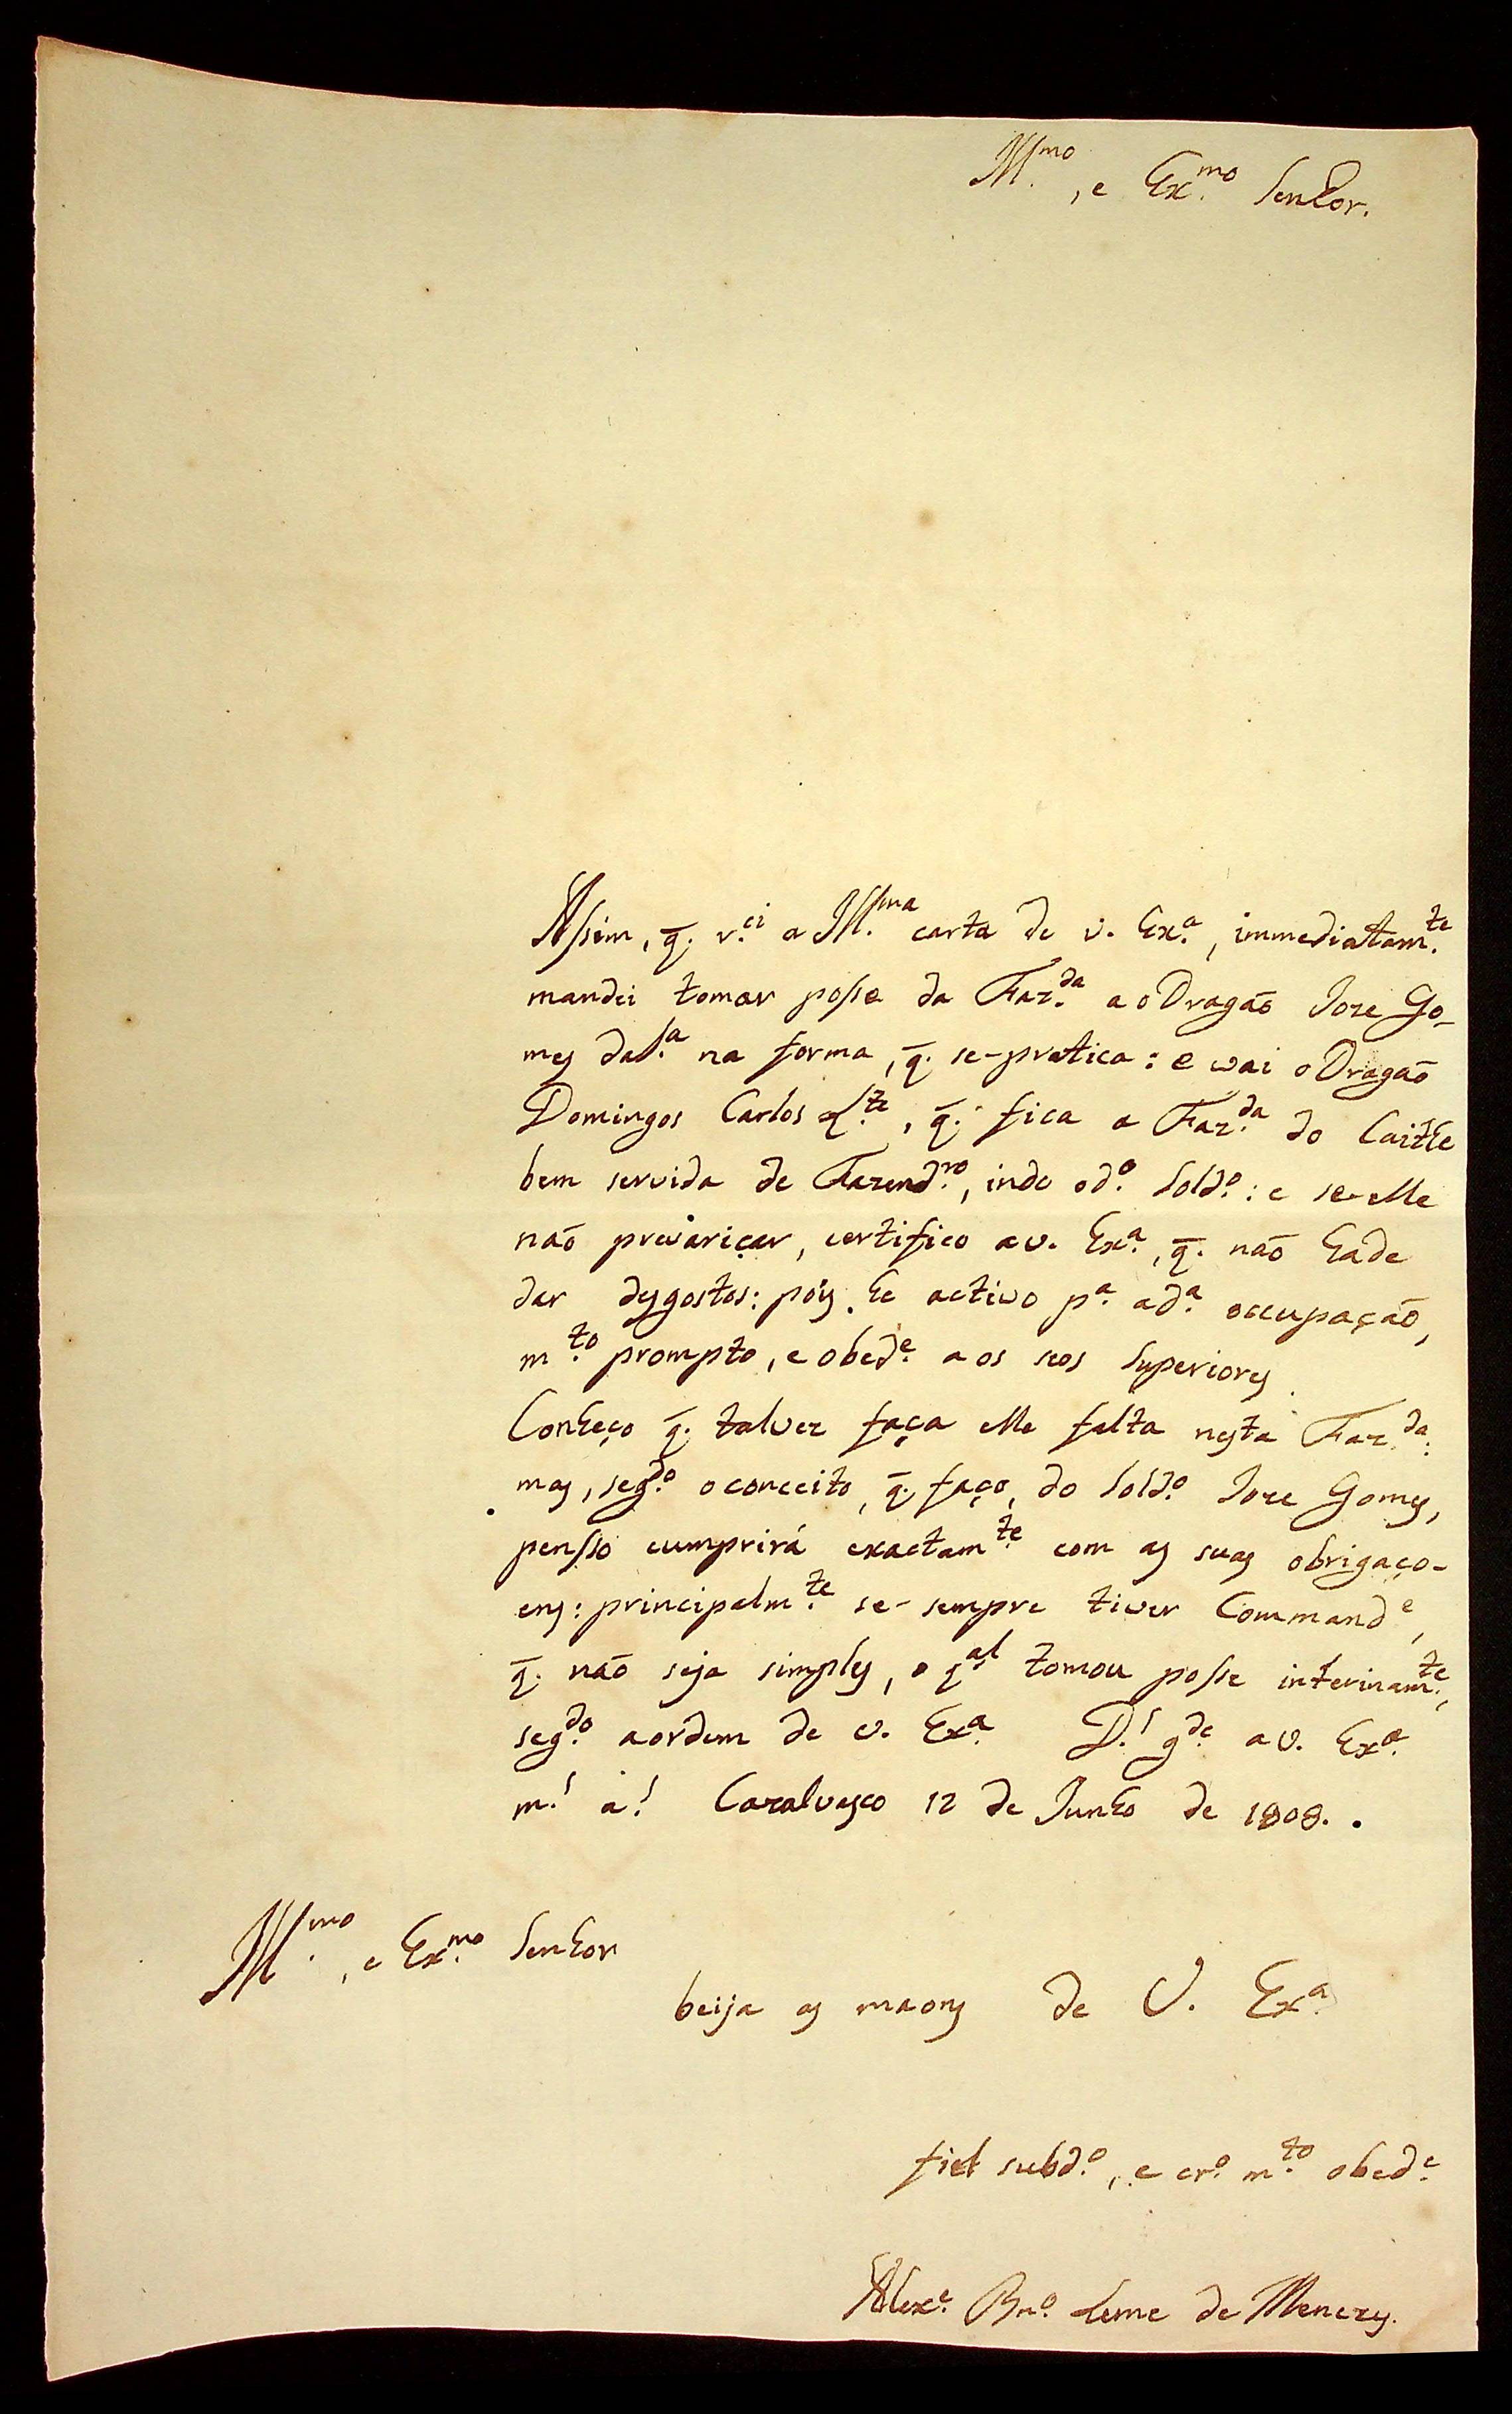 Ill.mo, e Ex.mo Senhor.
Assim, q̃. r.ci a Ill.ma carta de V. Ex.a, immediatam.te
mandei tomar posse da Faz.da ao Dragaõ Joze Go-
mes da S.a na forma, q̃. se-pratica: e vai o Dragaõ
Domingos Carlos L.te, q̃. fica a Faz.da do Caithe
bem servida de Fazend.ro, indo o d.o Sold.o: e se-elle
naõ prevariçar, certifico a V. Ex.a, q̃. naõ hade
dar desgostos: pois he activo p.a a d.a occupaçaõ,
m.to prompto, e obed.e aos seos Superiores.
Conheço q̃. talvez faça elle falta nesta Faz.da:
mas, seg.do o conceito, q̃. faço, do Sold.o Joze Gomes,
pensso cumprirá exactam.te com as suas obrigaço-
ens: principalm.te se-sempre tiver Command.e,
q̃. naõ seja simples, o q.al tomou posse interinam.te,
seg.do a ordem de V. Ex.a D.s g.de a V. Ex.a
m.s a.s Cazalvasco 12 de Junho de 1808..
Ill.mo, e Ex.mo Senhor
beija as maons de V. Ex.a
fiel subd.o, e cr.o m.to obed.e
Alex.e Bn.o Leme de Menezes.